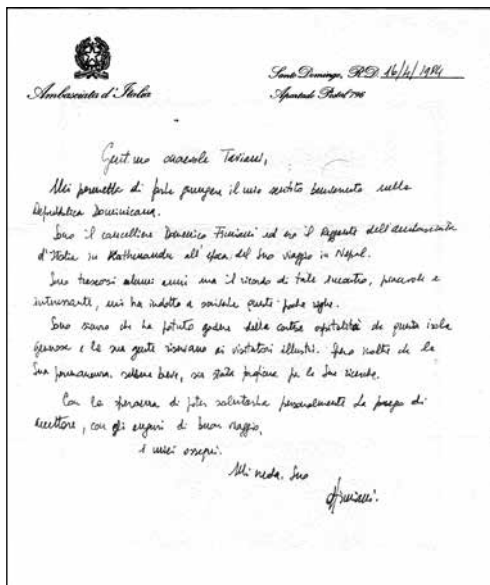 Ambasciata d'Italia
Santo Domingo, R.D. 16/4/1984
Apartado Postal 796
Gent.mo onorevole Taviani,
Mi permetta di farle giungere il mio sentito benvenuto nella
Repubblica Dominicana.
Sono il cancelliere Domenico Fimiani ed ero il Reggente dell'ambasciata
d'Italia in Kathmandu all'epoca del Suo viaggio in Nepal.
Sono trascorsi alcuni anni ma il ricordo di tale incontro, piacevole e
interessante, mi ha indotto a scriverle queste poche righe.
Sono sicuro che ha potuto godere della cortese ospitalità che questa isola
generosa e la sua gente riservano ai visitatori illustri. Spero inoltre che la
Sua permanenza, sebbene breve, sia stata proficua per le Sue ricerche.
Con la speranza di poter salutarla personalmente La prego di
accettare, con gli auguri di buon viaggio,
i miei ossequi.
Mi creda, Suo